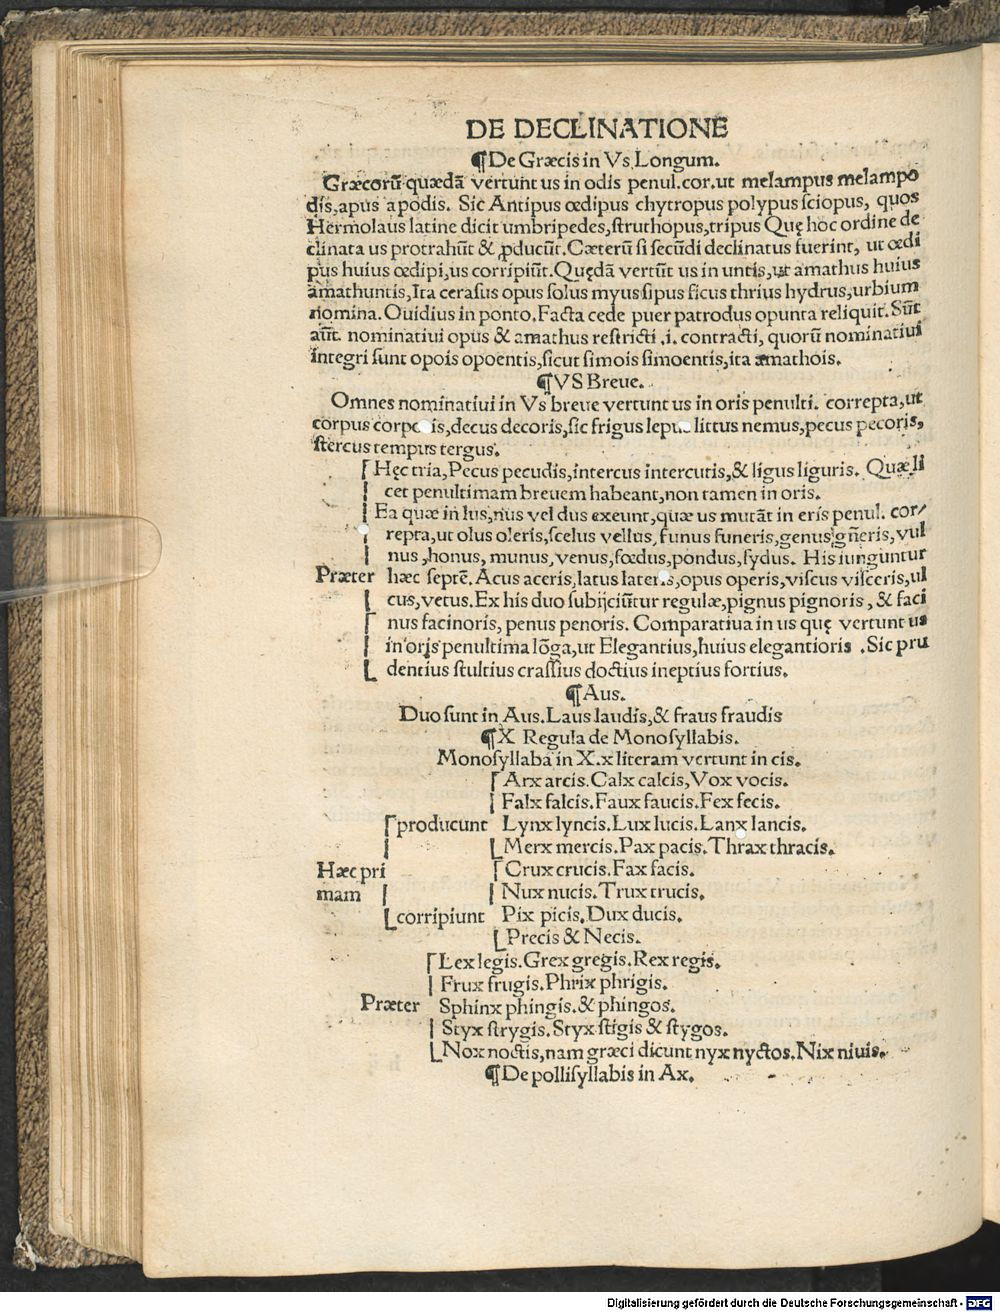 DE DECLINATIONE
¶De Græcis in Vs Longum.
Græcorũ quædã vertunt us in odis penul.cor.ut melampus melampo
dis,apus apodis. Sic Antipus œdipus chytropus polypus ſciopus, quos
Hermolaus latine dicit umbripedes,ſtruthopus,tripus Quę hoc ordine de
clinata us protrahũt & ꝓducũt.Cæterũ ſi ſecũdi declinatus fuerint, ut œdi
pus huius œdipi,us corripiũt.Quędã vertũt us in untis,ut amathus huius
amathuntis,Ita ceraſus opus ſolus myus ſipus ſicus thrius hydrus,urbium
nomina.Ouidius in ponto.Facta cede puer patrodus opunta reliquit.Sũt
aũt. nominatiui opus & amathus reſtricti .i. contracti, quorũ nominatiui
integri ſunt opois opoentis,ſicut ſimois ſimoentis,ita amathois.
¶VS Breue.
Omnes nominatiui in Vs breue vertunt us in oris penulti. correpta,ut
corpus corpo is,decus decoris,ſic frigus lepu littus nemus,pecus pecoris,
ſtercus tempus tergus.
Hęc tria,Pecus pecudis,intercus intercutis,& ligus liguris. Quæ li
cet penultimam breuem habeant,non tamen in oris.
Ea quæ in lus,nus vel dus exeunt,quæ us mutãt in eris penul. cor/
repta,ut olus oleris,ſcelus vellus, funus funeris,genus gñeris,vul
nus,honus, munus,venus,fœdus,pondus,ſydus. His iunguntur
Præter hæc ſeptẽ.Acus aceris,latus lateris,opus operis,viſcus viſceris,ul
cus,vetus.Ex his duo ſubijciũtur regulæ,pignus pignoris, & faci
nus facinoris, penus penoris. Comparatiua in us quę vertunt us
in oris penultima lõga,ut Elegantius,huius elegantioris .Sic pru
dentius ſtultius craſſius doctius ineptius fortius.
¶Aus.
Duo ſunt in Aus.Laus laudis,& fraus fraudis
¶X Regula de Monoſyllabis.
Monoſyllaba in X.x literam vertunt in cis.
Arx arcis.Calx calcis,Vox vocis.
Falx falcis.Faux faucis.Fex fecis.
producunt Lynx lyncis.Lux lucis.Lanx lancis.
Merx mercis.Pax pacis.Thrax thracis.
Hæc pri Crux crucis.Fax facis.
mam Nux nucis.Trux trucis.
corripiunt Pix picis.Dux ducis.
Precis & Necis.
Lex legis.Grex gregis.Rex regis.
Frux frugis.Phrix phrigis.
Præter Sphinx phingis.& phingos.
Styx ſtrygis.Styx ſtigis & ſtygos.
Nox noctis,nam græci dicunt nyx nyctos.Nix niuis.
¶De polliſyllabis in Ax.
Digitalisierung gefördert durch die Deutsche Forschungsgemeinschaft - DFG